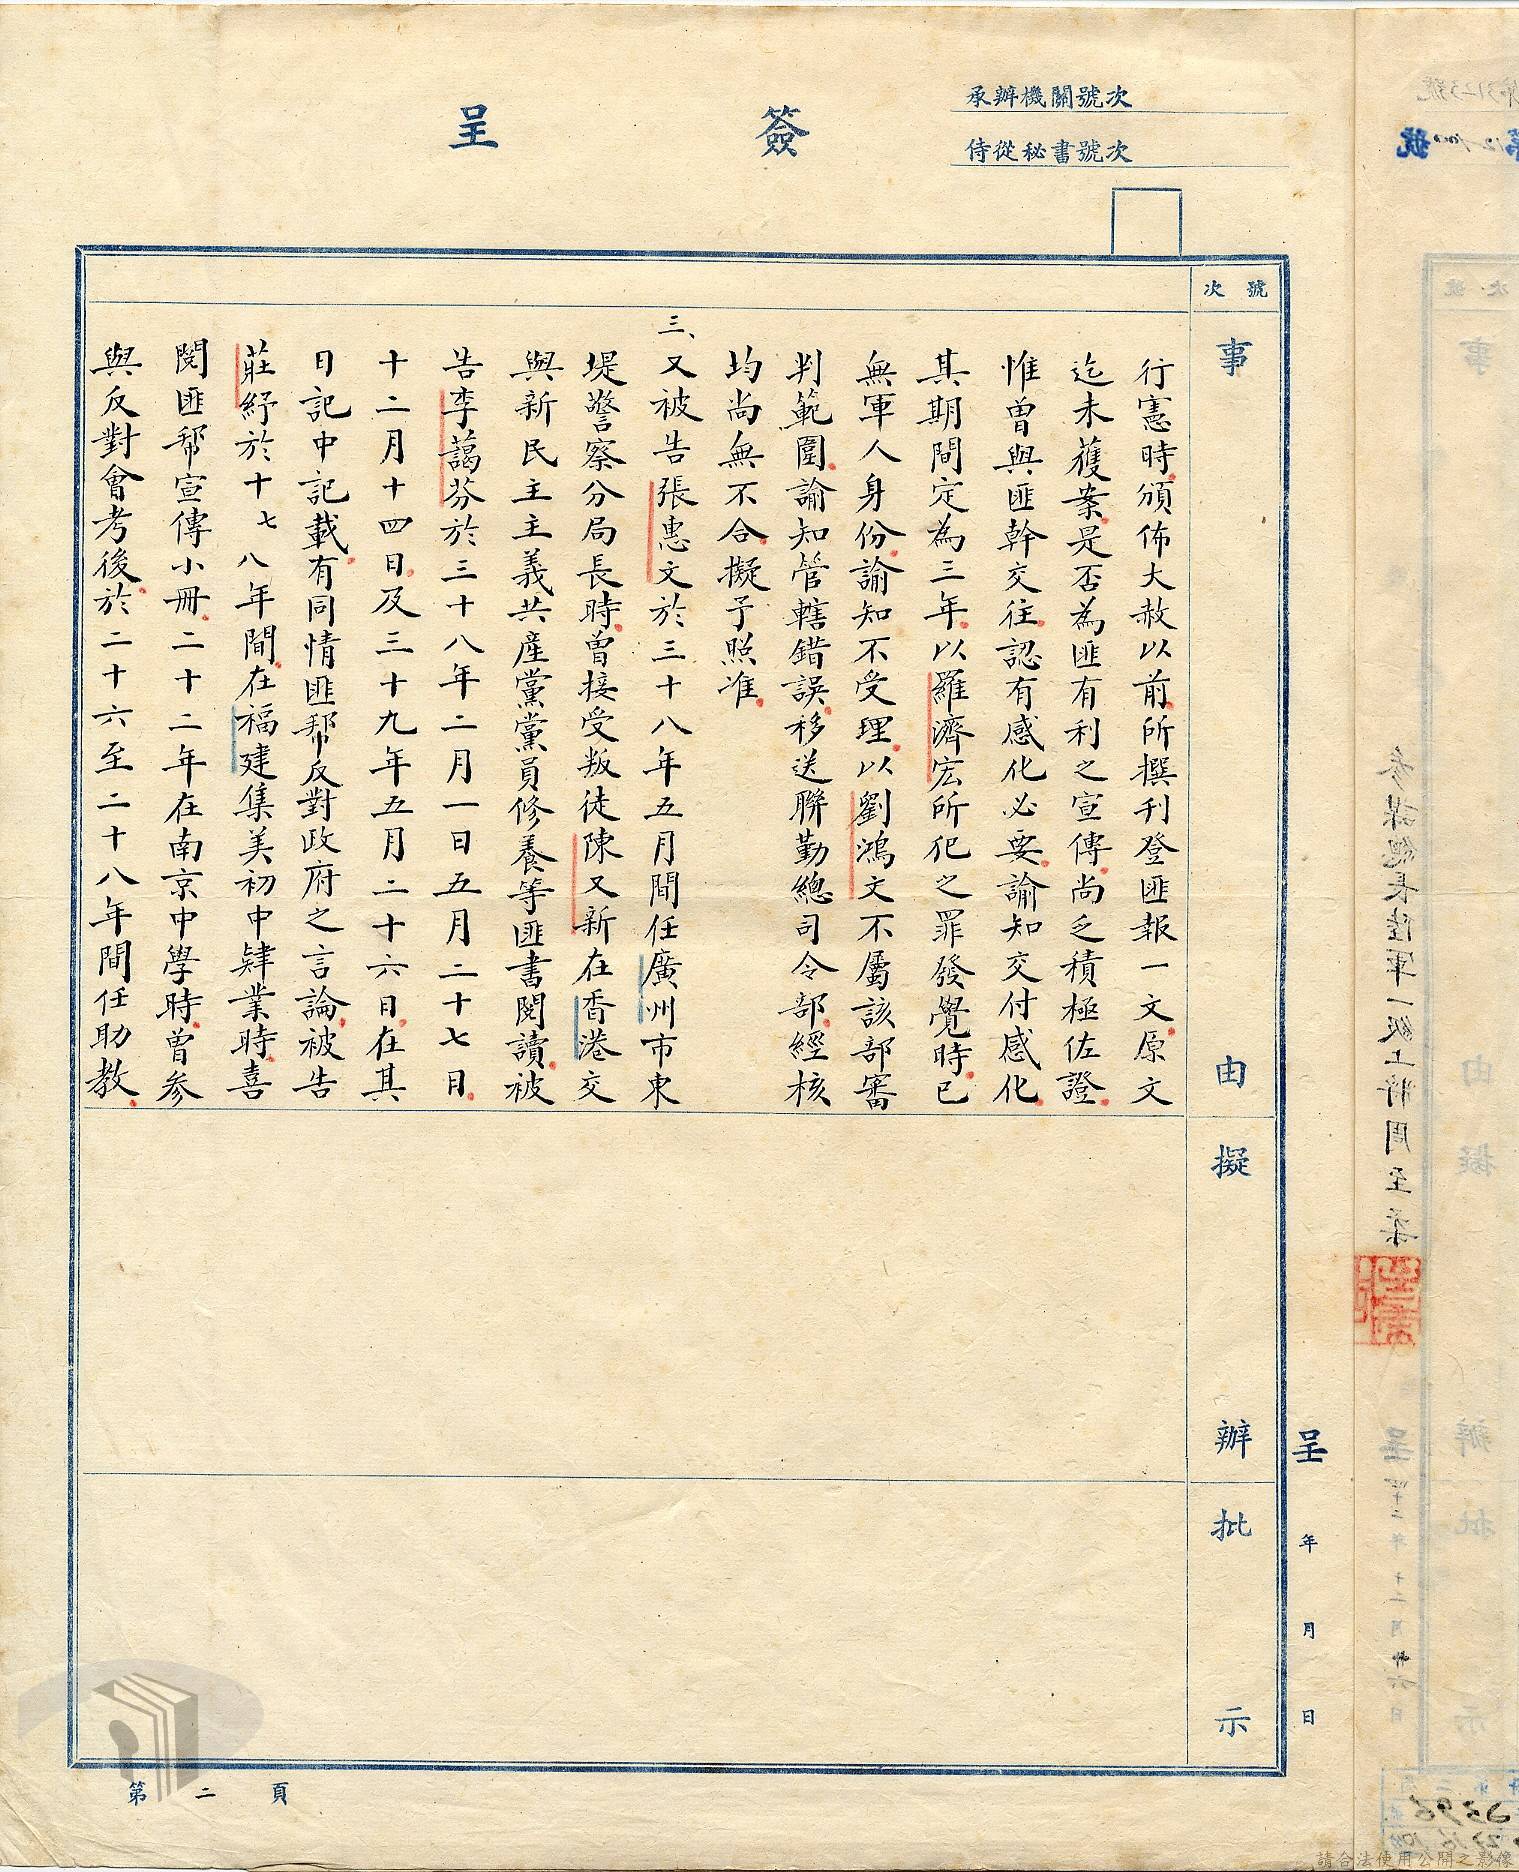 簽呈
承辦機關號次
侍從秘書號次
號次
事由
擬辦
批示
行憲時頒佈大赦以前所撰刊登匪報一文原文
迄未獲案是否為匪有利之宣傳尚乏積極佐證
惟曾與匪幹交往認有感化必要諭知交付感化
其期間定為三年以羅濟宏所犯之罪發覺時已
無軍人身份諭知不受理以劉鴻文不屬該部審
判範圍諭知管轄錯誤移送聯勤總司令部經核
均尚無不合擬予照准
三、又被告張惠文於三十八年五月間任廣州市東
堤警察分局長時曾接受叛徒陳又新在香港交
與新民主主義共產黨黨員修養等匪書閱讀被
告李蔼芬於三十八年二月一日五月二十七月
十二月十四日及三十九年五月二十六日在其
日記中記載有同情匪幫反對政府之言論被告
莊紓於十七八年間在福建集美初中肄業時喜
閱匪幫宣傳小冊二十二年在南京中學時曾參
與反對會考後於二十六至二十八年間任助教
呈 年 月 日
第二頁
參謀總長陸軍一級上將周至柔
呈 四十二年十二月廿六日
請合法使用公開之影像